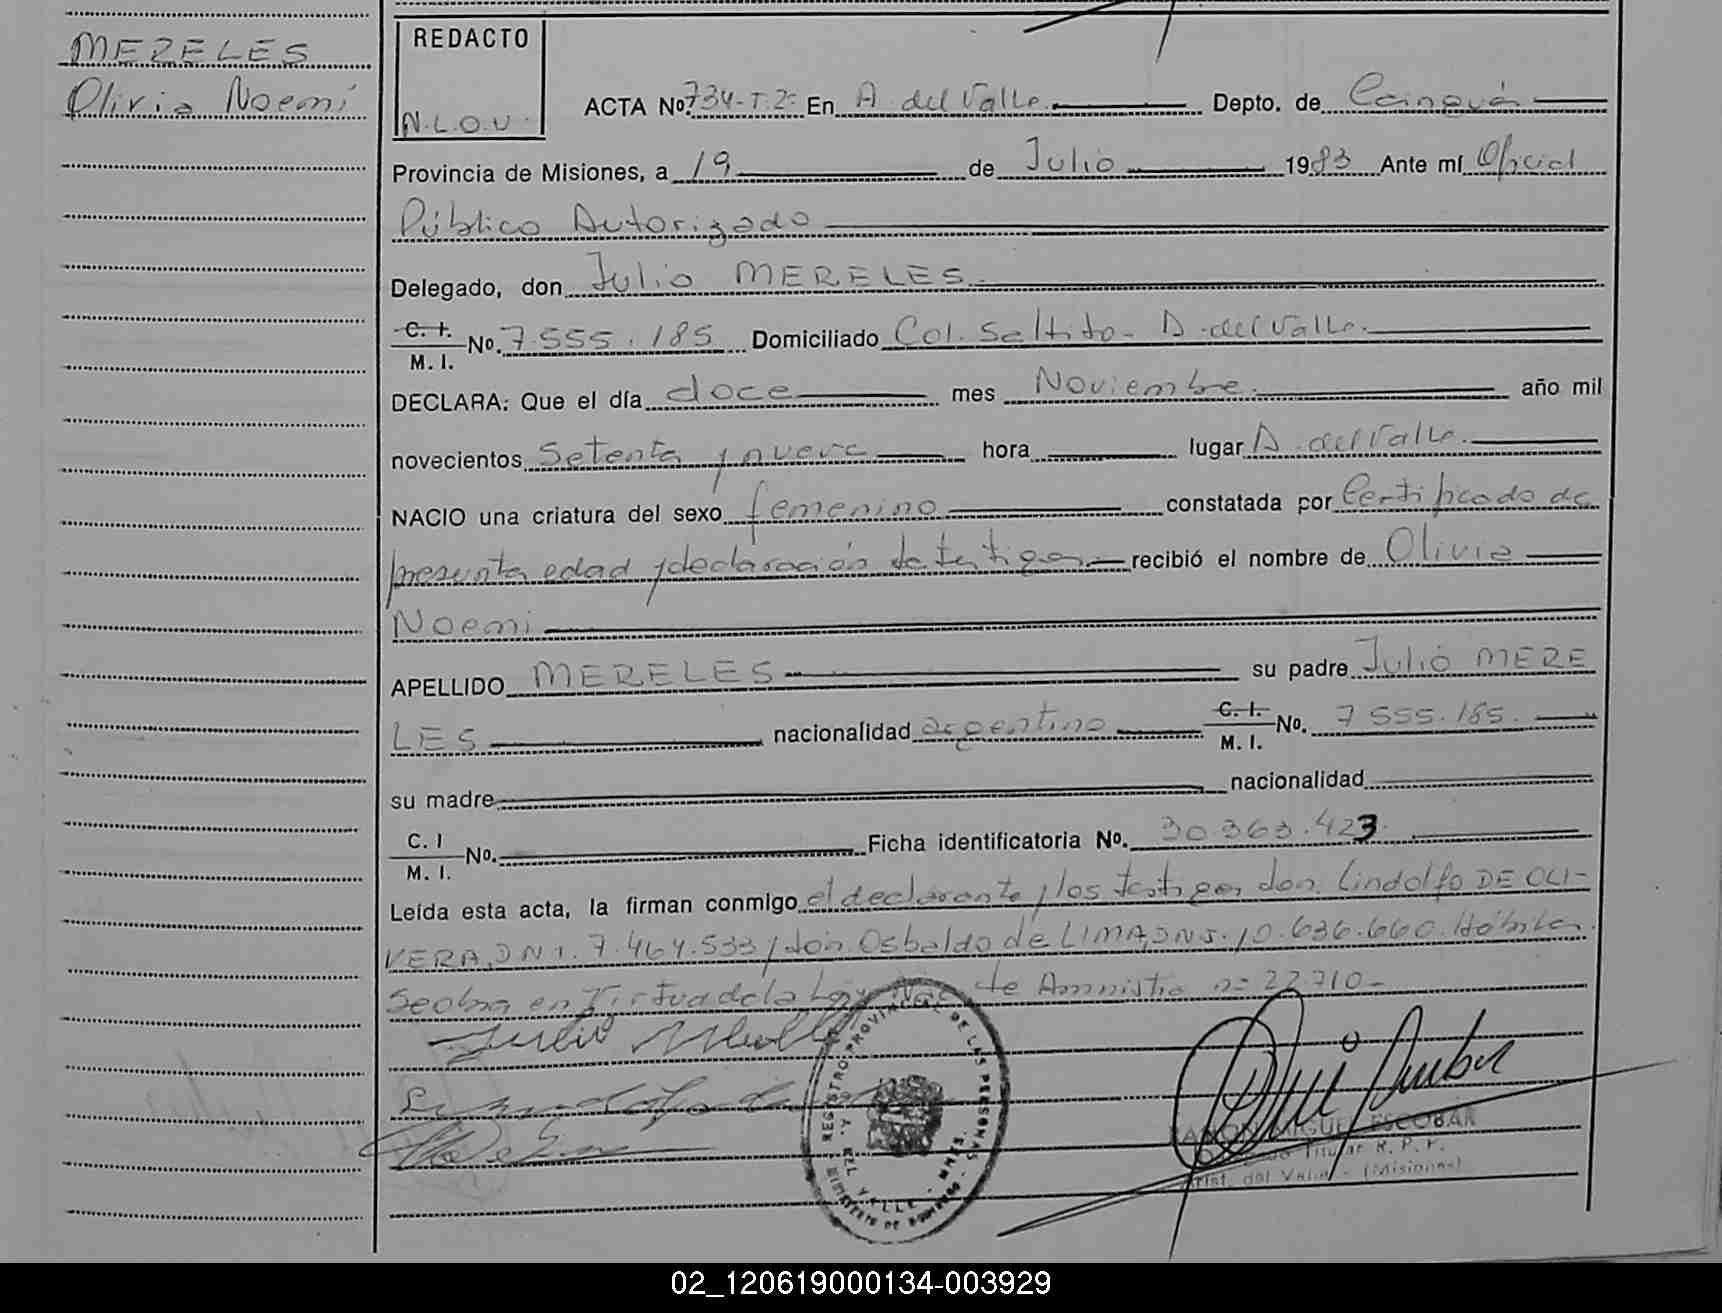 MERELES
Olivia Noemí
REDACTO
N.L.O.V.
ACTA No 734-T.2- En A. del Valle Depto. de Cainguás
Provincia de Misiones, a 19 de Julio 1983 Ante mí Oficial
Público Autorizado
Delegado, don Julio MERELES
C. I. / M. I. No. 7.555.185 Domiciliado Col. Saltito - A. del Valle.
DECLARA: Que el día doce mes Noviembre año mil
novecientos Setenta y nueve hora lugar A. del Valle.
NACIO una criatura del sexo femenino constatada por Certificado de
presunta edad y declaración de testigos recibió el nombre de Olivia
Noemi
APELLIDO MERELES su padre Julio MERE
LES nacionalidad argentino C. I. / M. I. No. 7.555.185.
su madre nacionalidad
C. I / M. I. No. Ficha identificatoria No. 30.363.423.
Leída esta acta, la firman conmigo el declarante y los testigos don. Lindolfo DE OLI-
VERA, DNI. 7.464.533 y don. Osbaldo de LIMA, DNI. 10.636.660. Hábiles.
Se labra en Virtud de la Ley Nac. de Amnistia nº 22.710-
REGISTRO PROVINCIAL DE LAS PERSONAS
DEL VALLE - MNES.
MINISTERIO DE GOBIERNO
RAMON MIGUEL ESCOBAR
Titular R. P. P.
Arist. del Valle - (Misiones)
02_120619000134-003929